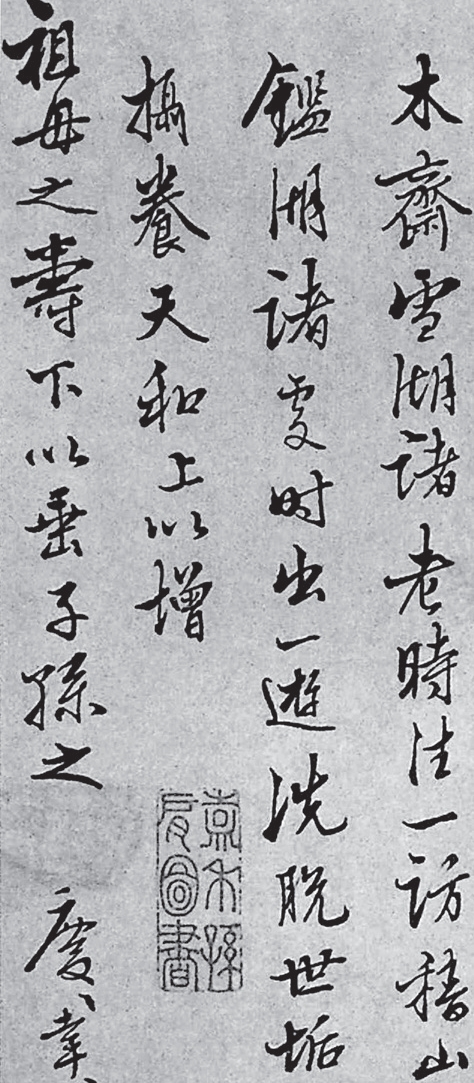 木齋雪湖諸老時往一訪稽山
鑑湖諸處时出一遊洗脫世垢
攝養天和上以增
祖母之壽下以垂子孫之慶、幸、
圖書